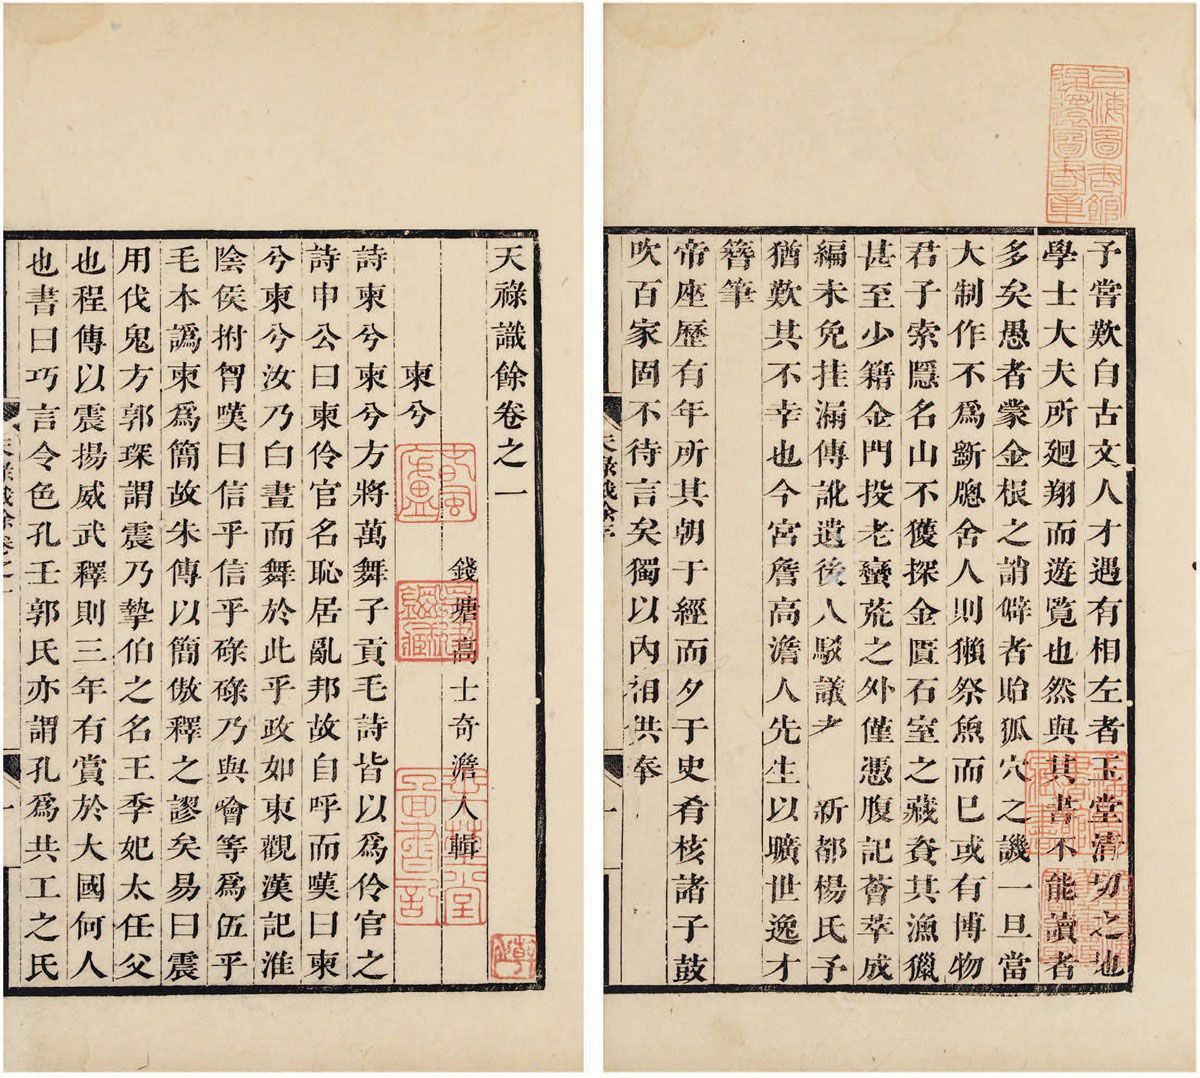 上海圖書館
退還圖書章
予嘗歎自古文人才遇有相左者玉堂清切之地
學士大夫所廻翔而遊覧也然與其書不能讀者
多矣愚者蒙金根之誚僻者貽狐穴之譏一旦當
大制作不為斵牕舍人則獺祭魚而巳或有博物
君子索隱名山不獲探金匱石室之藏資其漁獵
甚至少籍金門投老蠻荒之外僅憑腹記薈萃成
編未免挂漏傳訛遺後人駁議 新都楊氏予
猶歎其不幸也今宮詹高澹人先生以曠世逸才
簪筆
帝座歷有年所其朝于經而夕于史肴核諸子鼓
吹百家固不待言矣獨以內祖洪奉
天祿識餘序
一
天祿識餘卷之一
錢塘高士奇澹人輯
柬兮
詩柬兮柬兮方將萬舞子貢毛詩皆以為伶官之
詩申公曰柬伶官名恥居亂邦故自呼而嘆曰柬
兮柬兮汝乃白晝而舞於此乎政如東觀漢記淮
陰侯拊胷嘆曰信乎信乎碌碌乃與噲等為伍乎
毛本譌柬為簡故朱傳以簡傲釋之謬矣易曰震
用伐鬼方郭琛謂震乃摯伯之名王季妃太任父
也程傳以震揚威武釋則三年有賞於大國何人
也書曰巧言令色孔壬郭氏亦謂孔為共工之氏
天祿識餘卷之一
一